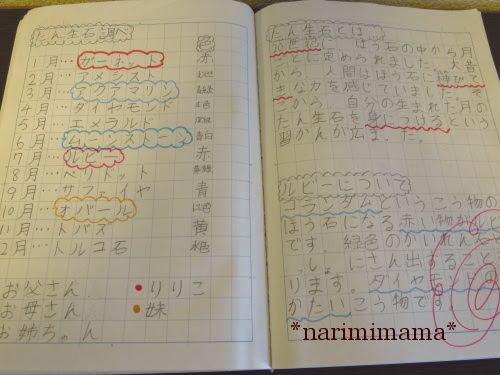 たん生石調べ
色
1月…ガーネット 赤
2月…アメシスト
3月…アクアマリン
4月…ダイヤモンド
5月…エメラルド
6月…ムーンストーン 青白
7月…ルビー 赤
8月…ペリドット
9月…サファイヤ 青
10月…オパール
11月…トパズ 黄
2月…トルコ石
お父さん ●りりこ
お母さん ●妹
お姉ちゃん
たん生石とは
20世紀に ほう石の中から月
ごとに定められました。大昔
から、人間はほう石に
きな力を感じていました。
から 自分の生まれた月の
たん生石を身につけるという
習かんが広ま
ルビーについて
コランダムというこう物の
ほう石になる赤い物がルビ
です。緑色の
に さん出すること
ります。ダイヤモンド
かたいこう物です。
*narimimama*